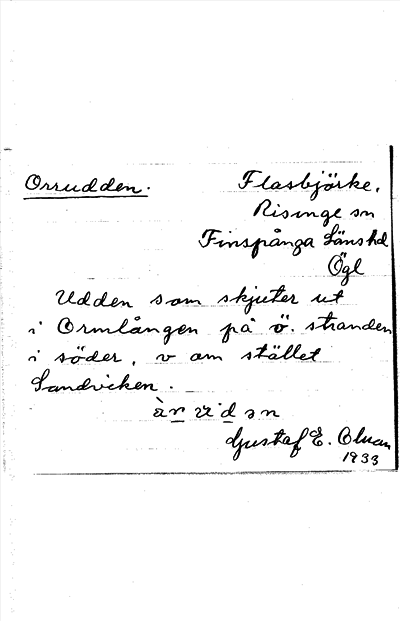 Orrudden.
Flasbjörke,
Risinge sn
Finspånga Läns hd
Ögl
Udden som skjuter ut
i Ormlången på ö. stranden
i söder, v om stället
Sandviken.
Gustaf E.
1933